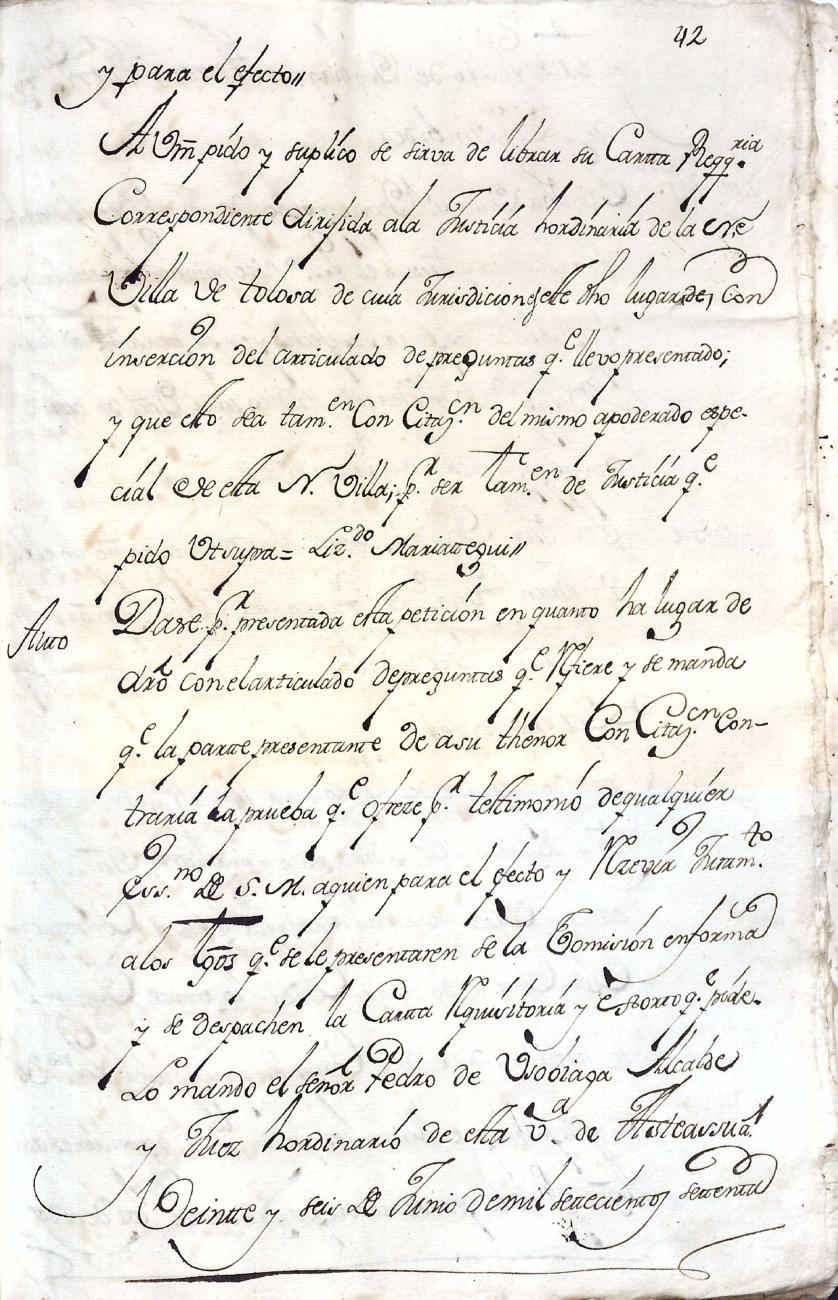 42
y para el efecto //
A Vm̄ pido y suplico se sirva de librar su Cartta Reqq.ria
Correspondiente dirijida a la Justicia hordinaria de la N.e
Villa de tolosa de cuia Jurisdicion es este dho lugar, de, con
inserción del articulado de preguntas q.e llevo presentado;
y que esto sea tam.en Con Citaz.on del mismo apoderado espe-
cial de esta N. Villa; p.r ser tam.en de Justicia q.e
pido Utsupra = Liz.do Mariategui //
Auto
Dase p.r presentada esta petición en quanto ha lugar de
dró con el articulado de preguntas q.e Refiere y se manda
q.e la partte presentante de a su thenor Con Citaz.on Con-
traria la prueba q.e ofreze p.r testimonio de qualquier
Ess.no de S. M. a quien para el efecto y Rezevir Juram.to
a los tgōs q.e se le presentaren se da Comisión en forma
y se despachen la Cartta Requisitoria y exsorto q.e pide.
Lo mando el señor Pedro de Usobiaga Alcalde
y Juez hordinario de esta V.a de Asteassu á
Veintte y seis de Junio de mil settecientos settenta